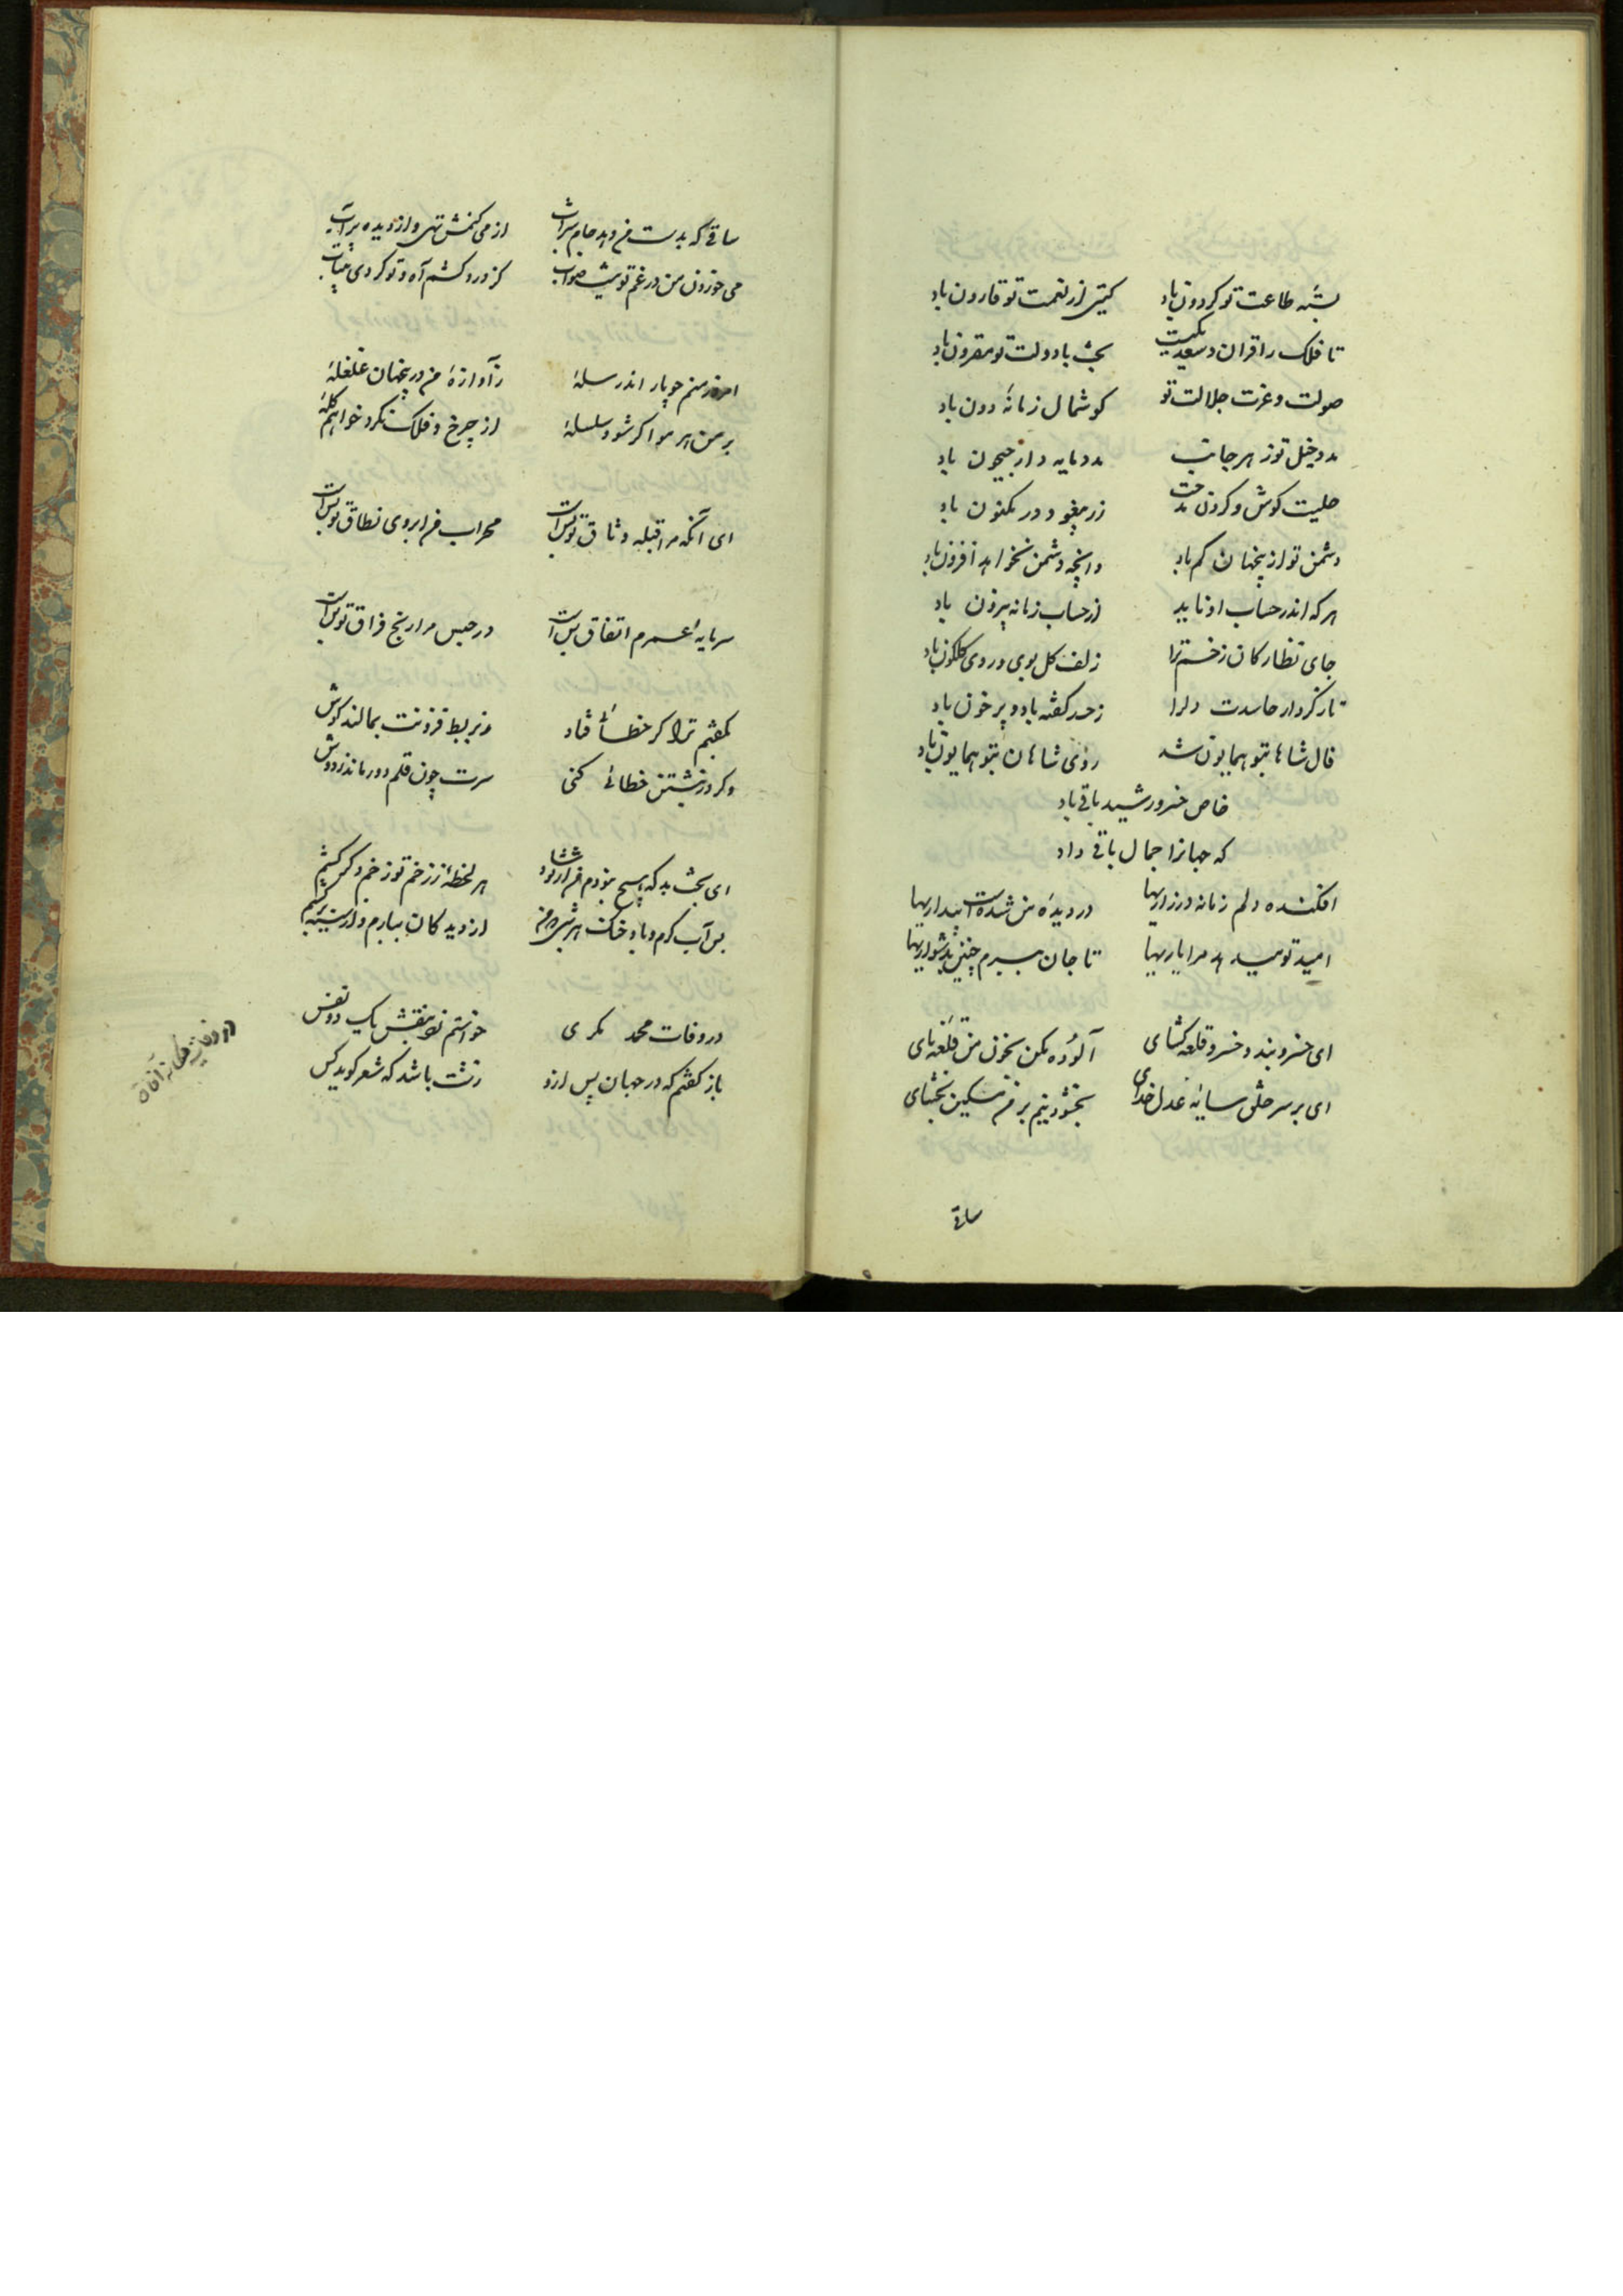 بسته طاعت تو گردون باد گیتی از نعمت تو قارون باد
تا فلک را قران و سعدیست بخت با دولت تو مقرون باد
صولت و عزت جلالت تو گوشمال زمانه دون باد
مدد خیل تو ز هر جانب مدد مایه دار جیحون باد
حلیت گوش و گردن در مکنون باد
دشمن تو ازینجهان کم باد وانچه دشمن نخواهد افزون باد
هر که اندر حساب او ناید از حساب زمانه بیرون باد
جای نظارگان ز خسم ترا زلف گل بوی و روی گلگون باد
نار کردار حاسدت دلرا ز حسد کفته باد و پر خون باد
فال شاها بتو همایون شد روی شاهان بتو همایون باد
خاص خسرو رشید باقی باد
که جهانرا جمال باقی داد
افکنده دلم زمانه در زاریها در دیده من شدست بیداریها
امید تو میدهد مرا یاریها تا جان ببرم چنین بدشواریها
ای خسرو بند و خسرو قلعه گشای آلوده مکن بخون من قلعه نای
ای بر سر خلق سایه عدل خدای بخشودنیم بر من مسکین بخشای
ساقی
ساقی که بدست من دهد جام شراب از می کنمش تهی و از دیده پر آب
می خوردن من در غم تو نیست صواب کز درد کشم آه و تو کردی بیتاب
امروز منم چو یار اندر سله ز آوازه من درینجهان غلغله
بر من هر موا گر شود سلسله از چرخ و فلک نکرد خواهم گله
ای آنکه مرا قبله وثاق تو بس است محراب من ابروی بطاق تو بس است
سرمایه عمرم اتفاق تو بس است در حبس مرا رنج فراق تو بس است
گفتم ترا گر خطا فتاد بمالند گوش
وگر در نبشتن خطائی کنی سرت چون قلم دور ماند ز دوش
ای بخت بد که هیچ نبودم هر لحظه ز زخم تو زخم دگر کشم
بس آب گرم و باد خنک از دیدگان ببارم و از سینه برکشم
در وفات محمد بکری خواستم زد بنقش یک دو نفس
باز گفتم که در جهان پس ازو زشت باشد که شعر گوید کس